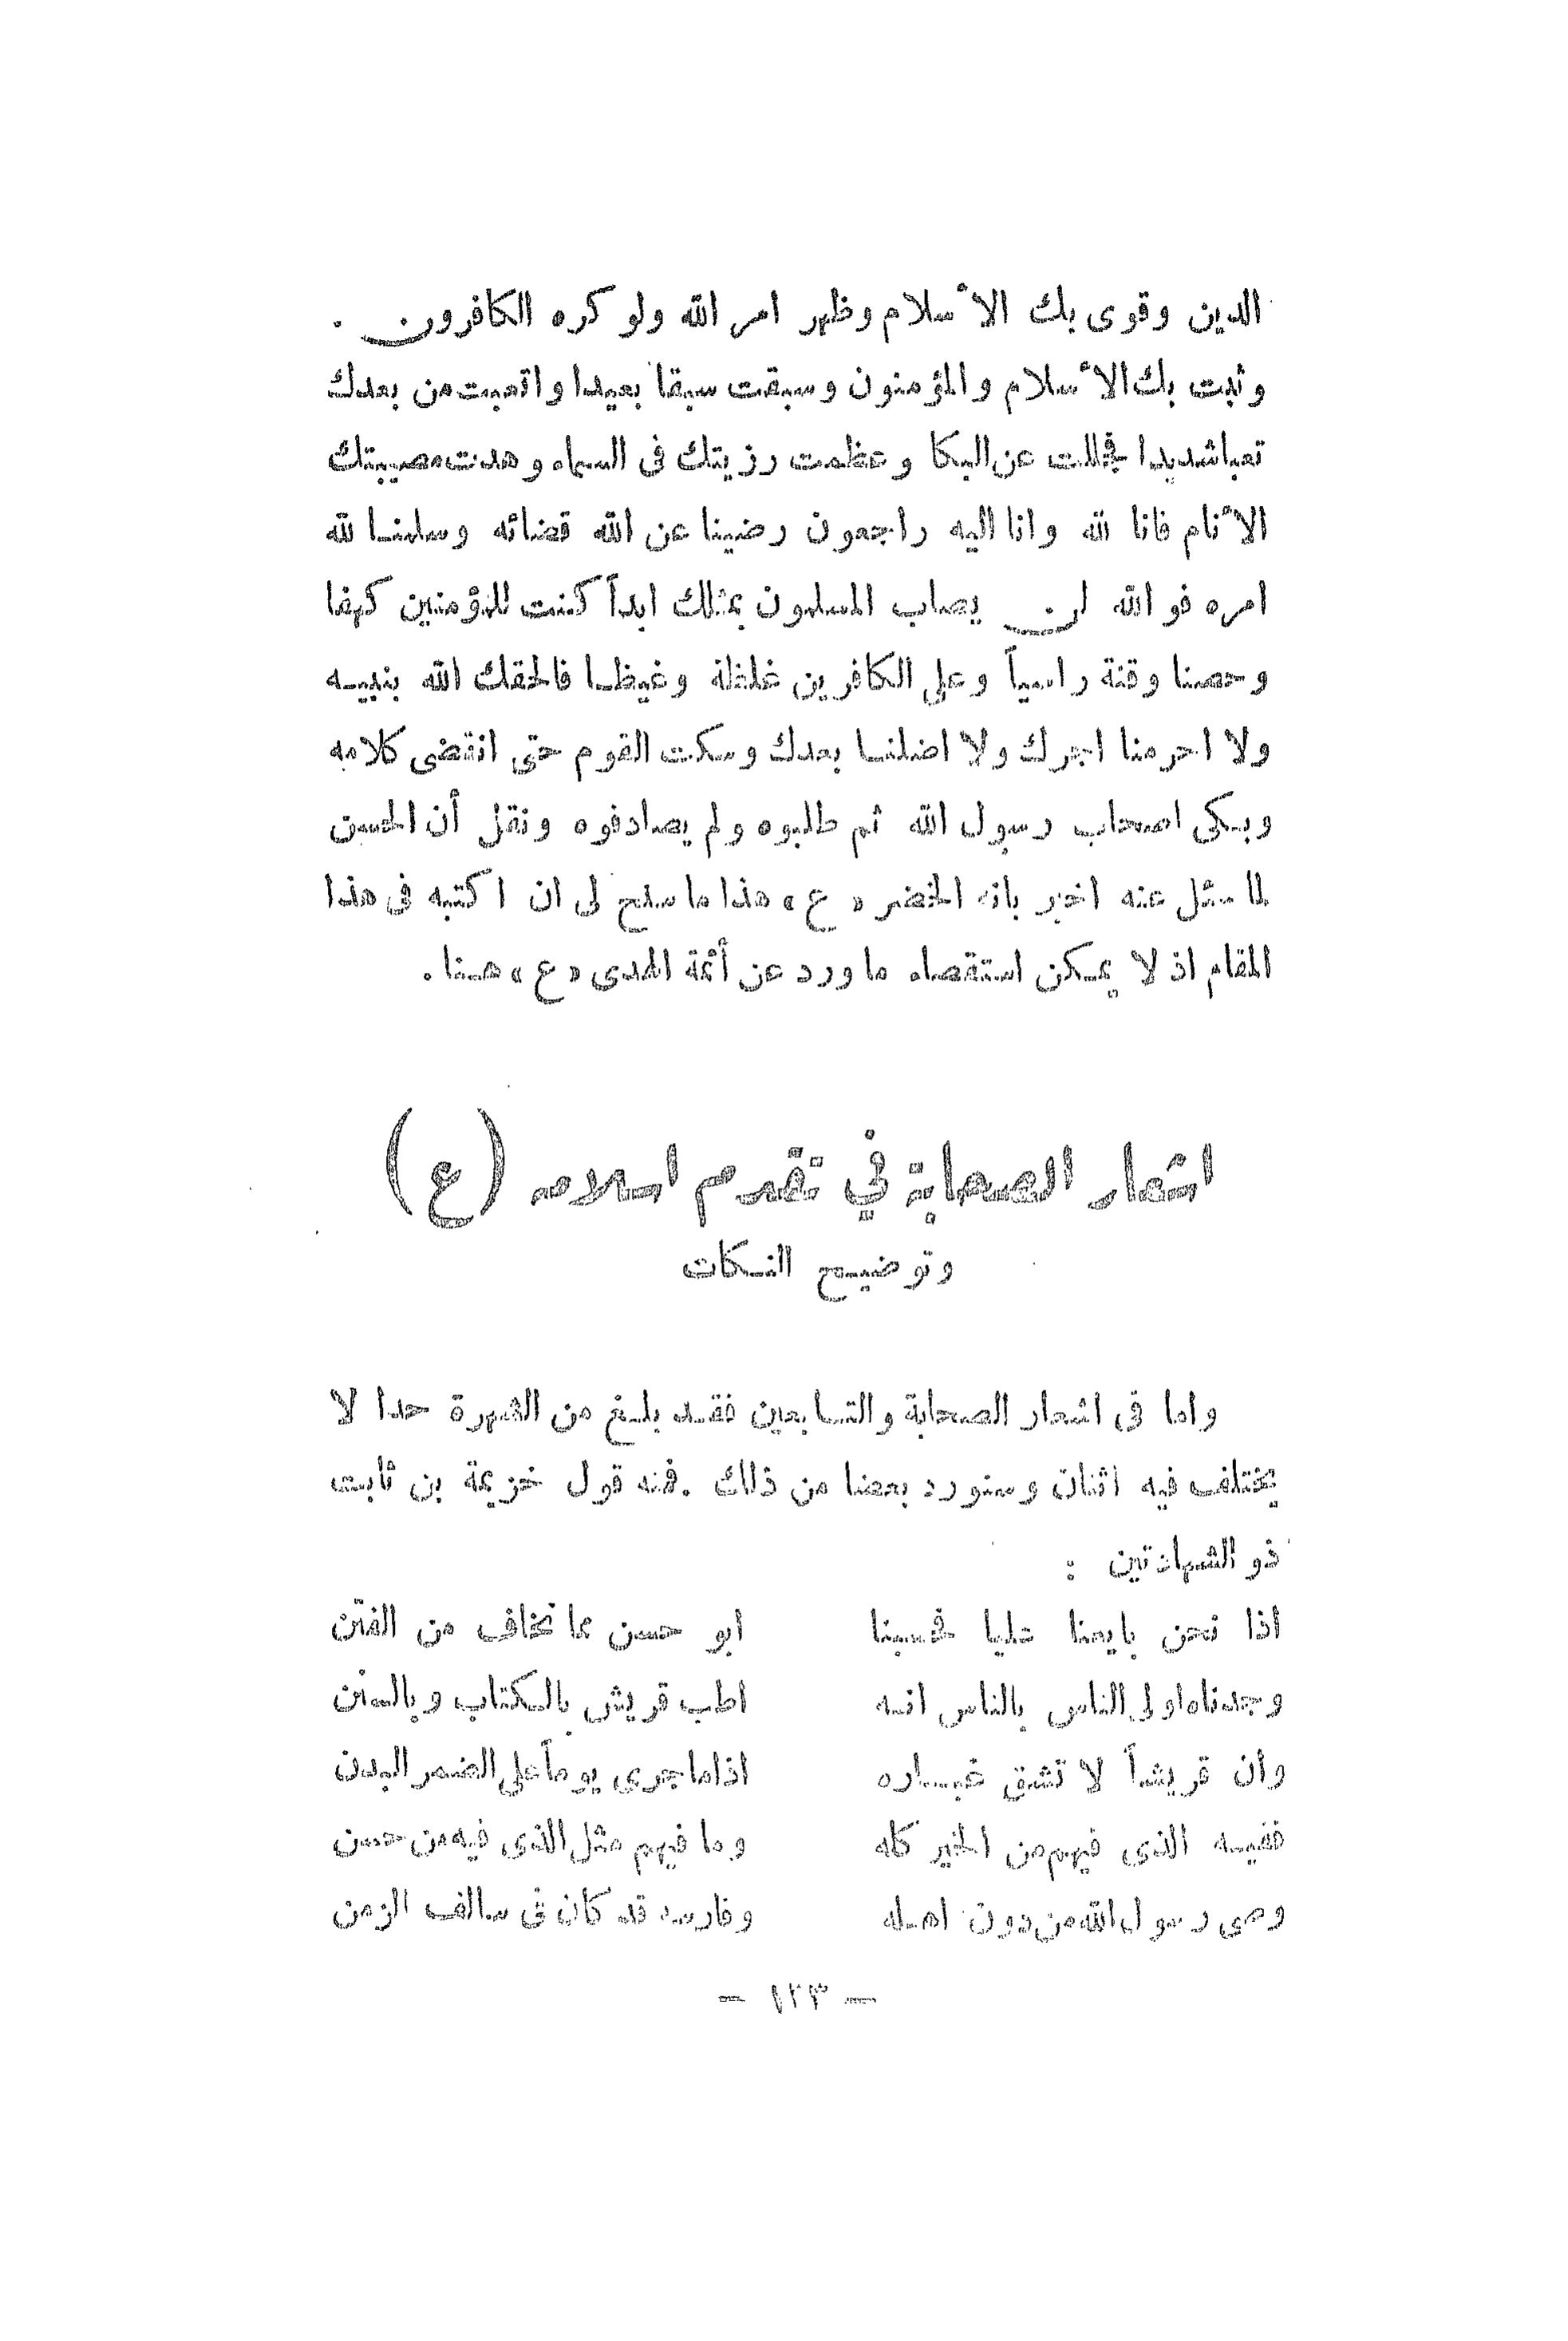 الدين وقوى بك الأسلام وظهر امر الله ولو كره الكافرون .
وثبت بك الأسلام والمؤمنون وسبقت سبقا بعيدا واتعبت من بعدك
تعبا شديدا فجللت عن البكا وعظمت رزيتك فى السماء وهدت مصيبتك
الأنام فانا لله وانا اليه راجعون رضينا عن الله قضائه وسلمنا لله
امره فو الله لن يصاب المسلمون بمثلك ابداً كنت للمؤمنين كهفا
وحصنا وقنة راسياً وعلى الكافرين غلظة وغيظا فالحقك الله بنبيه
ولا احرمنا اجرك ولا اضلنا بعدك وسكت القوم حتى انقضى كلامه
وبكى اصحاب رسول الله ثم طلبوه ولم يصادفوه ونقل أن الحسن
لما سئل عنه اخبر بانه الخضر «ع» هذا ما سنح لى ان اكتبه فى هذا
المقام اذ لا يمكن استقصاء ما ورد عن أئمة الهدى «ع» هنا .
اشعار الصحابة في تقدم اسلامه (ع)
وتوضيح النكات
واما فى اشعار الصحابة والتابعين فقد بلغ من الشهرة حدا لا
يختلف فيه اثنان وسنورد بعضا من ذلك . فمنه قول خزيمة بن ثابت
ذو الشهادتين :
اذا نحن بايعنا عليا فحسبنا ابو حسن مما نخاف من الفتن
وجدناه اولى الناس بالناس انه اطب قريش بالكتاب وبالسنن
وان قريشاً لا تشق غباره اذا ما جرى يوماً على الضمر البدن
ففيه الذى فيهم من الخير كله وما فيهم مثل الذى فيه من حسن
وصى رسول الله من دون اهله وفارسه قد كان فى سالف الزمن
— ١٢٣ —